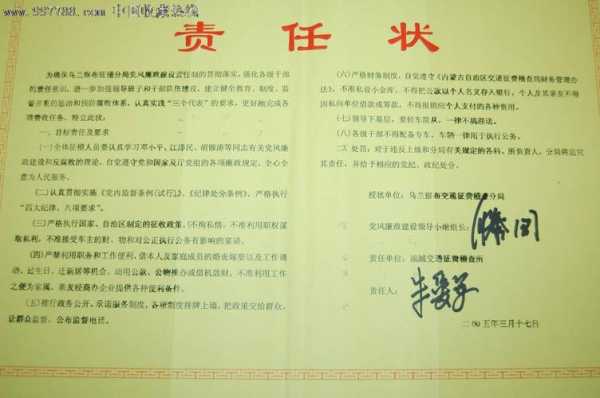 www.997788.com 中国收藏热线
责任状
为确保乌兰察布征稽分局党风廉政建设责任制的贯彻落实，强化各级干部
的责任意识，进一步加强领导班子和干部队伍建设，建立健全教育、制度、监
督并重的惩治和预防腐败体系，认真实践“三个代表”的要求，更好地完成各
项费收任务，特立此状：
一、目标责任及要求
(一)全体征稽人员要认真学习邓小平、江泽民、胡锦涛等同志有关党风廉
政建设和反腐败的理论，自觉遵守党和国家及厅党组的各项廉政规定，全心全
意为人民服务。
(二)认真贯彻实施《党内监督条例(试行)》、《纪律处分条例》，严格执行
“四大纪律、八项要求”。
(三)严格执行国家、自治区制定的征收政策，不徇私情，不准利用职权谋
取私利，不准接受车主的财、物和对公正执行公务有影响的宴请。
(四)严禁利用职务和工作便利，借本人及家庭成员的婚丧嫁娶以及工作调
动、过生日、迁新居等机会，动用公款、公物操办或借机敛财，不准利用工作
之便为家属、亲友经商办企业提供各种便利条件。
(五)推行政务公开、承诺服务制度，各项制度挂牌上墙，把政策交给群众，
让群众监督，公布监督电话。
(六)严格财务制度，自觉遵守《内蒙古自治区交通征费稽查局财务管理办
法》，不准私设小金库，不得把公款以个人名义存入银行，个人及其亲友不得
因私向单位借款或筹款，不得报销应个人支付的各种费用。
(七)领导下基层，要轻车简从，一律不搞迎送。
(八)各级干部不得配备专车，车辆一律用于执行公务。
二、处罚：对于违反上级和分局有关规定的各科、所负责人，分局将追究
其责任，并给予相应的党纪、政纪处分。
授状单位：乌兰察布交通征费稽查分局
党风廉政建设领导小组组长：
责任单位：凉城交通征费稽查所
责任人：
二00五年三月十七日